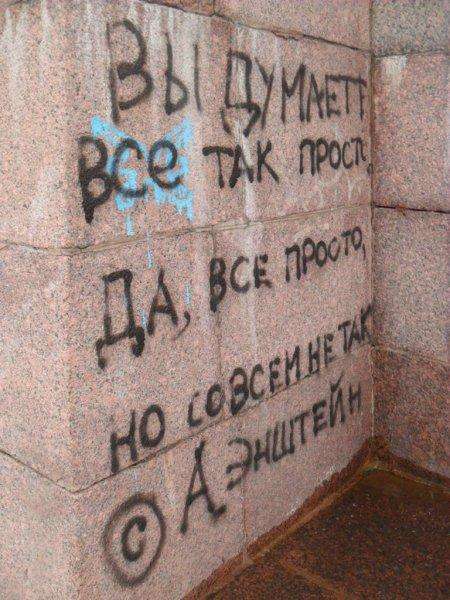 Вы ДУМАЕТЕ
ВСе ТАК ПРОСТО.
ДА, ВСЕ ПРОСТО,
НО СОВСЕМ НЕ ТАК
© А ЭНШТЕЙН